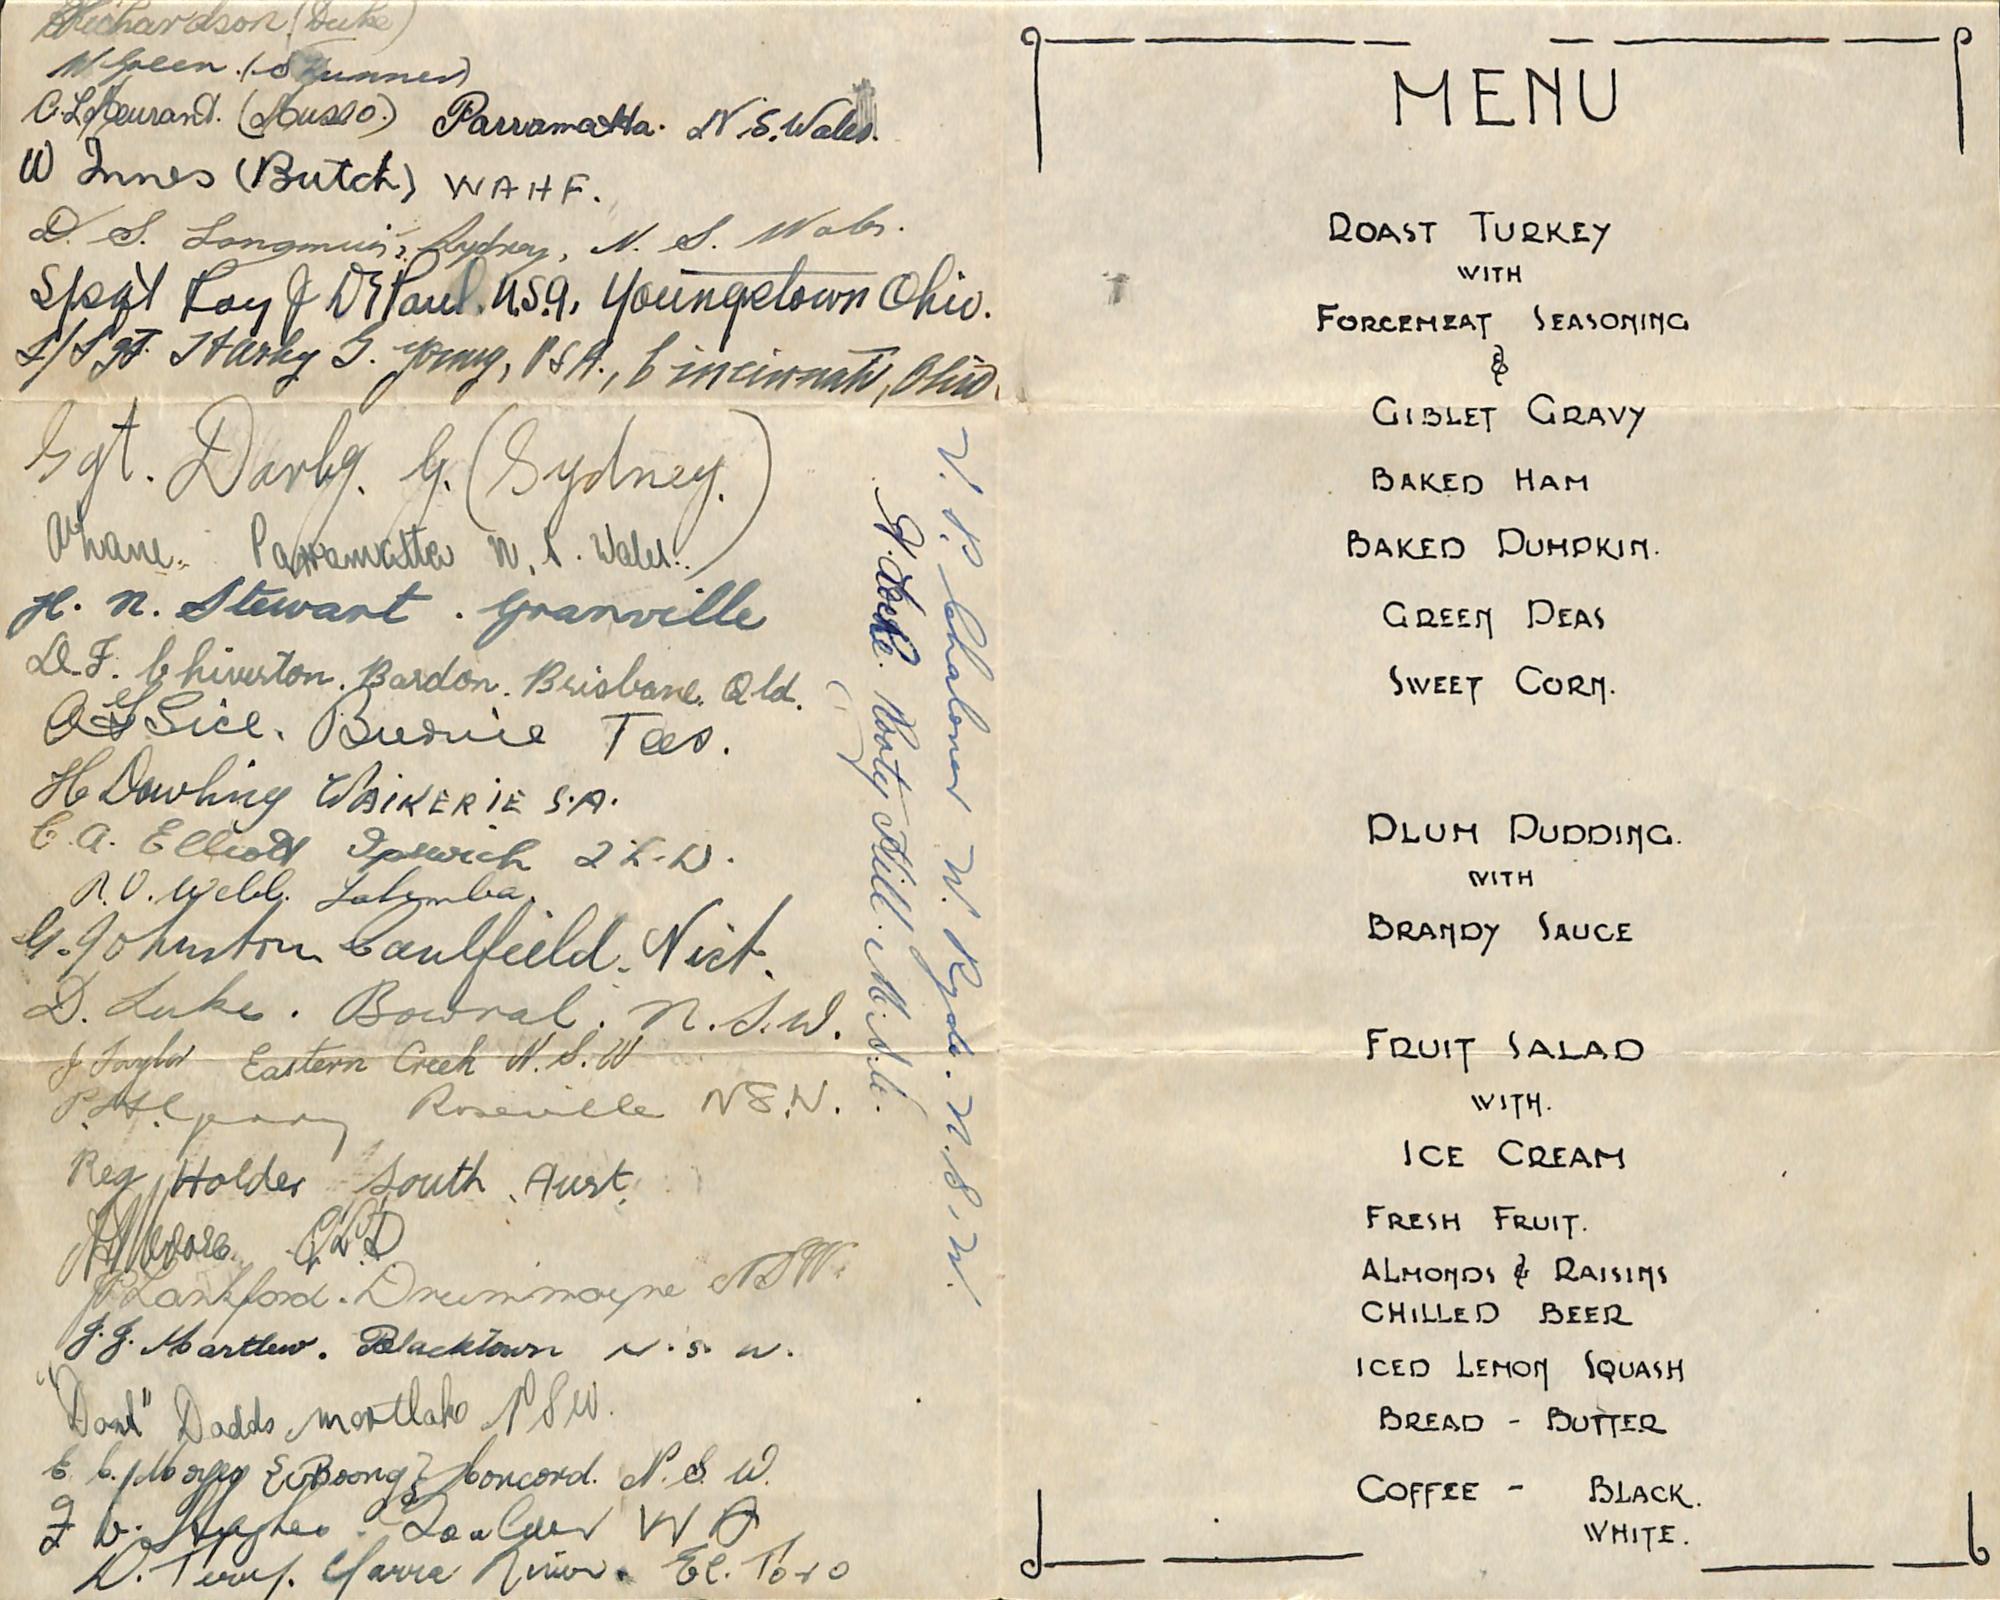 Richardson (Duke)
N Green.
(Musso.) Parramatta. N.S. Wales.
W Innes (Butch) WAHF.
D. S. Longmuir, Sydney, N. S. Wales.
Roy J DePaul. U.S.A. Youngstown Ohio.
S/Sgt. G. Young, USA., Cincinnati, Ohio.
Sgt. Darby. G. (Sydney.)
Parramatta N. S. Wales.
H. N. Stewart. Granville
D.F. Chiverton. Bardon. Brisbane. Qld.
Sice. Burnie Tas.
H Dowling WAIKERIE S.A.
C. A. Elliott Ipswich
R. V. Webb. Lakemba.
G. Johnston Caulfield. Vict.
D. Luke. Bowral. N.S.W.
J Taylor Eastern Creek N.S.W
Roseville NSW.
Reg Holder South Aust.
Moore. QLD
Lankford. Drummoyne NSW.
J.J. Martlew. Blacktown N.S.W.
Dadds Mortlake NSW.
Concord. N.S.W.
F W. Hughes. W A
D. Terry. Yarra River. El. Toro
Rooty Hill. N.S.W.
V. P. Chaloner W. Ryde. N.S.W.
MENU
ROAST TURKEY
WITH
FORCEMEAT SEASONING
&
GIBLET GRAVY
BAKED HAM
BAKED PUMPKIN.
GREEN PEAS
SWEET CORN.
PLUM PUDDING.
WITH
BRANDY SAUCE
FRUIT SALAD
WITH.
ICE CREAM
FRESH FRUIT.
ALMONDS & RAISINS
CHILLED BEER
ICED LEMON SQUASH
BREAD - BUTTER
COFFEE - BLACK.
WHITE.